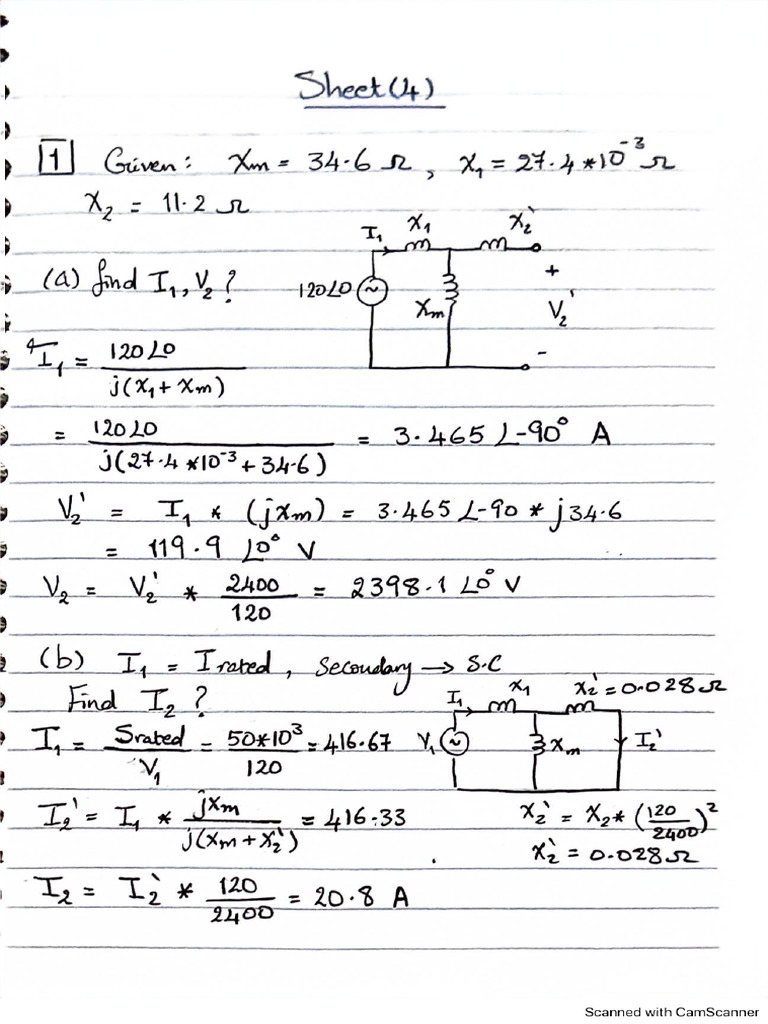 Sheet(4)
1 Given: Xm = 34.6 Ω, X1 = 27.4*10^-3 Ω
X2 = 11.2 Ω
I1 X1 X2'
(a) find I1, V2? 120∠0 Xm + V2' -
I1 = 120∠0 / j(X1 + Xm)
= 120∠0 / j(27.4*10^-3 + 34.6) = 3.465 ∠-90° A
V2' = I1 * (jXm) = 3.465 ∠-90 * j34.6
= 119.9 ∠0° V
V2 = V2' * 2400/120 = 2398.1 ∠0° V
(b) I1 = Irated, Secondary → S.C
Find I2? I1 X1 X2'=0.028Ω
I1 = Srated/V1 = 50*10^3/120 = 416.67 V1 Xm I2'
I2' = I1 * jXm / j(Xm + X2') = 416.33 X2' = X2* (120/2400)^2
X2' = 0.028Ω
I2 = I2' * 120/2400 = 20.8 A
Scanned with CamScanner